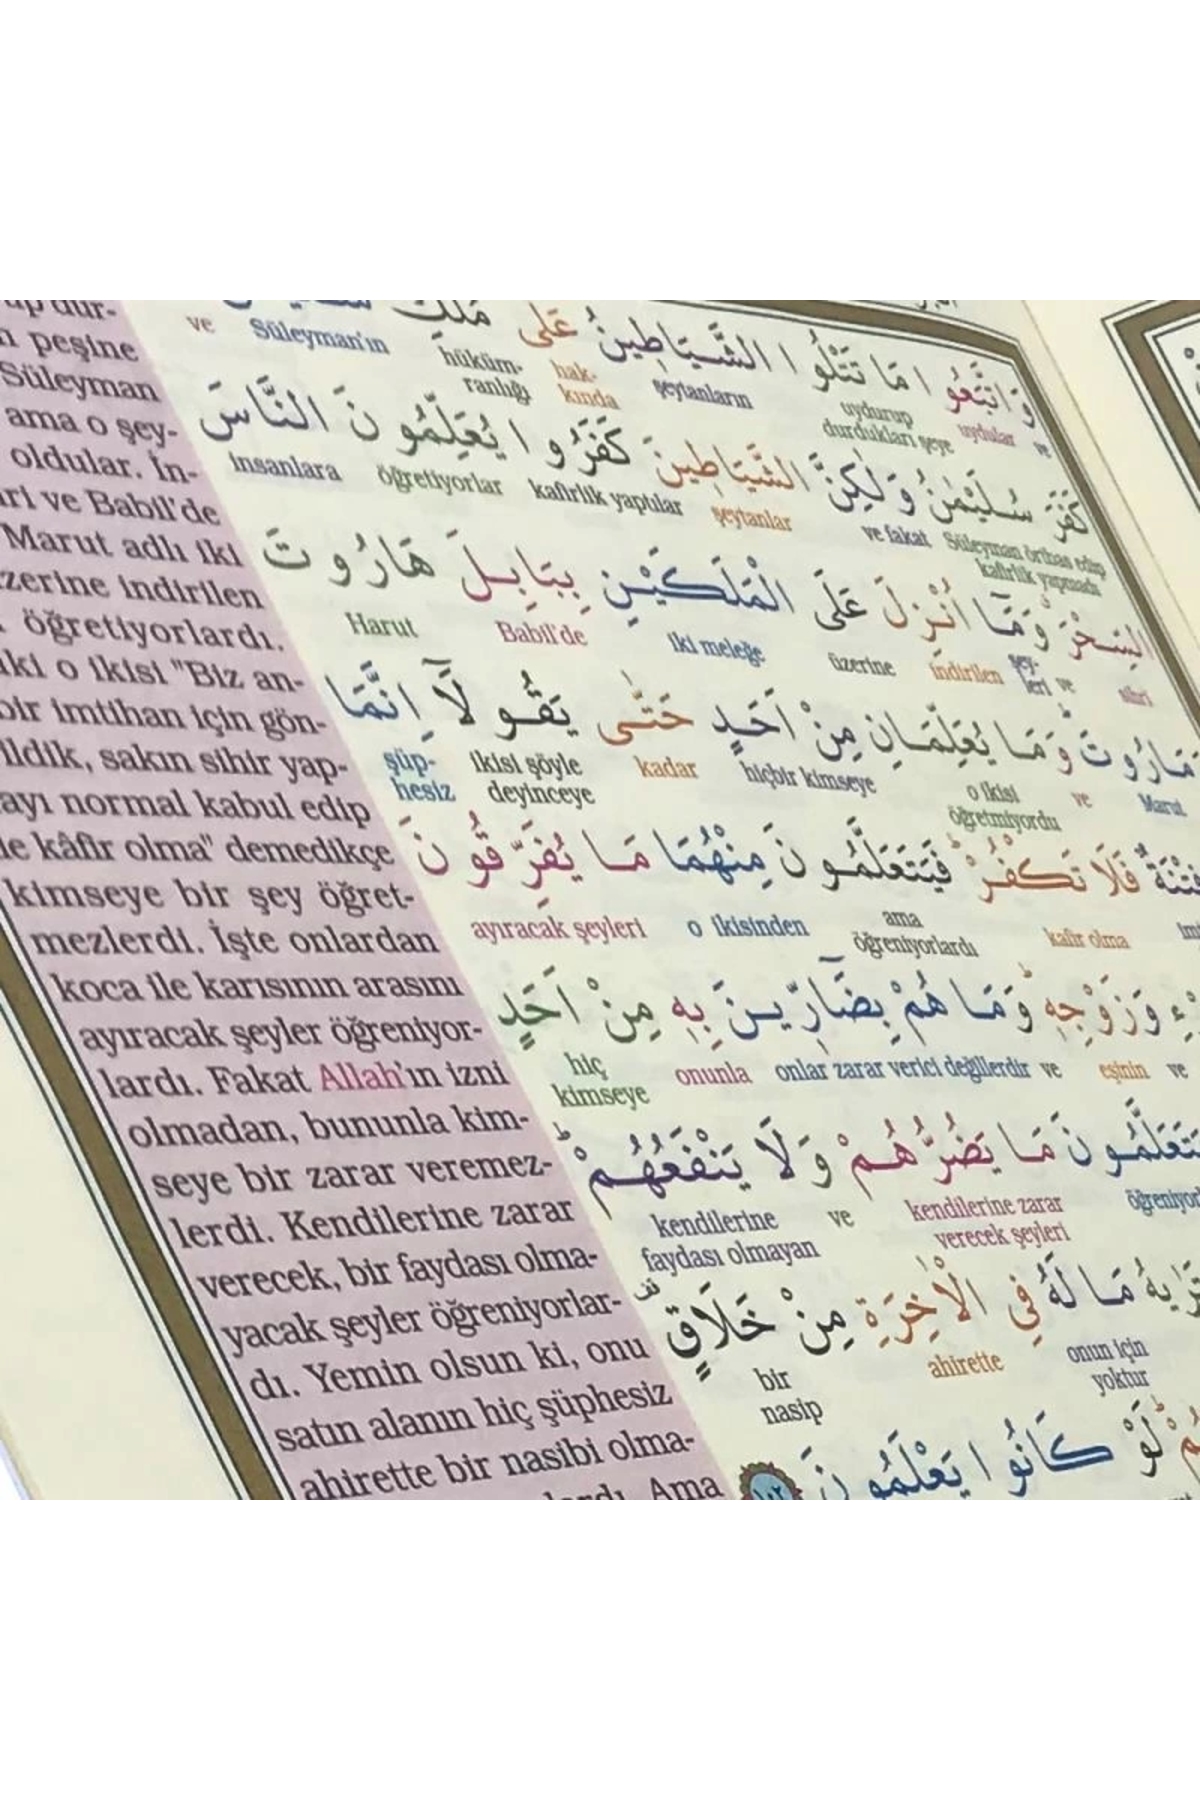 peşine
Süleyman
ama o şey-
oldular. İn-
ve Babil'de
Marut adlı iki
indirilen
öğretiyorlardı.
o ikisi "Biz an-
bir imtihan için gön-
sakın sihir yap-
normal kabul edip
kâfir olma" demedikçe
kimseye bir şey öğret-
mezlerdi. İşte onlardan
koca ile karısının arasını
ayıracak şeyler öğreniyor-
lardı. Fakat Allah'ın izni
olmadan, bununla kim-
seye bir zarar veremez-
lerdi. Kendilerine zarar
verecek, bir faydası olma-
yacak şeyler öğreniyorlar-
dı. Yemin olsun ki, onu
satın alanın hiç şüphesiz
ahirette bir nasibi olma-
Ama
وَاتَّبَعُوا مَا تَتْلُوا الشَّيَاطِينُ عَلٰى مُلْكِ
ve uydular uydurup durdukları şeye şeytanların hak-kında hüküm-ranlığı Süleyman'ın ve
كَفَرَ سُلَيْمٰنُ وَلٰكِنَّ الشَّيَاطِينَ كَفَرُوا يُعَلِّمُونَ النَّاسَ
Süleyman örtbas edip kafirlik yapmadı ve fakat şeytanlar kafirlik yaptılar öğretiyorlar insanlara
السِّحْرَۗ وَمَٓا اُنْزِلَ عَلَى الْمَلَكَيْنِ بِبَابِلَ هَارُوتَ
sihri ve şey-leri indirilen üzerine iki meleğe Babil'de Harut
مَارُوتَۜ وَمَا يُعَلِّمَانِ مِنْ اَحَدٍ حَتّٰى يَقُولَٓا اِنَّمَا
Marut ve o ikisi öğretmiyordu hiçbir kimseye kadar ikisi şöyle deyinceye şüp-hesiz
فِتْنَةٌ فَلَا تَكْفُرْۜ فَيَتَعَلَّمُونَ مِنْهُمَا مَا يُفَرِّقُونَ
kafir olma ama öğreniyorlardı o ikisinden ayıracak şeyleri
وَزَوْجِهِۜ وَمَا هُمْ بِضَٓارِّينَ بِهِ مِنْ اَحَدٍ
ve eşinin ve onlar zarar verici değillerdir onunla hiç kimseye
مَا يَضُرُّهُمْ وَلَا يَنْفَعُهُمْۜ
kendilerine zarar verecek şeyleri ve kendilerine faydası olmayan
مَا لَهُ فِي الْاٰخِرَةِ مِنْ خَلَاقٍ
onun için yoktur ahirette bir nasip
لَوْ كَانُوا يَعْلَمُونَ ١٠٢